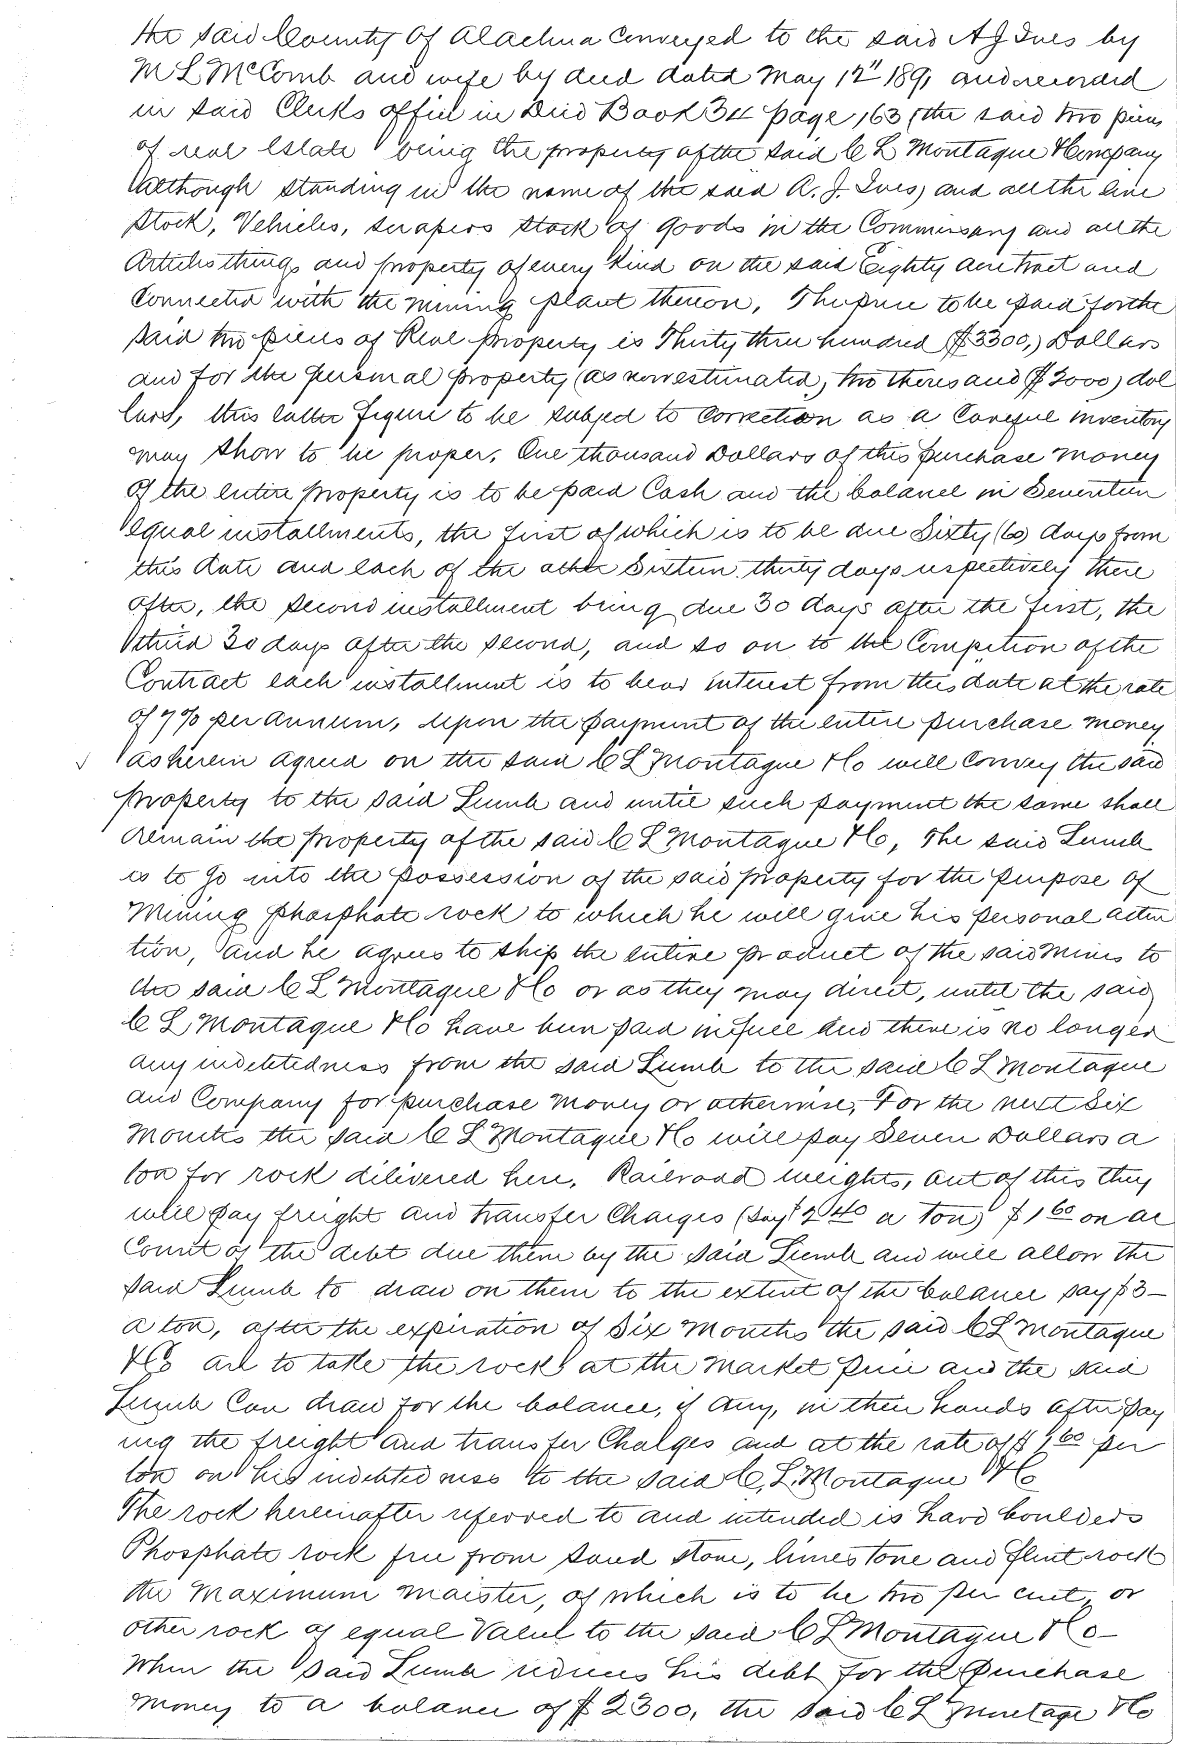 the said County of Alachua Conveyed to the said A J Ives by
M L McComb and wife by deed dated May 12" 1891 and recorded
in said Clerks office in Deed Book 34 page 163, the said two pieces
of real Estate being the property of the said C L Montague & Company
although standing in the name of the said A. J. Ives, and all the live
Stock, Vehicles, scrapers stock of goods in the Commissary and all the
Articles things and property of every kind on the said Eighty acre tract and
Connected with the mining plant thereon, The price to be paid for the
said two pieces of Real property is Thirty three hundred ($3300,) Dollars
and for the personal property (as now estimated, two thousand ($2000) dol
lars, this latter figure to be subject to Correction as a Careful inventory
may show to be proper. One thousand Dollars of this purchase money
of the entire property is to be paid Cash and the balance in Seventeen
equal installments, the first of which is to be due Sixty (60) days from
this date and each of the other Sixteen thirty days respectively there
after, the second installment being due 30 days after the first, the
third 30 days after the second, and so on to the Competion of the
Contract each installment is to bear interest from this date at the rate
of 7% per annum, upon the payment of the entire purchase money
as herein agreed on the said C L Montague & Co will Convey the said
property to the said Lumb and until such payment the same shall
remain the property of the said C L Montague & Co, The said Lumb
is to go into the possession of the said property for the purpose of
Mining phosphate rock to which he will give his personal atten
tion, and he agrees to ship the entire product of the said mines to
the said C L Montague & Co or as they may direct, until the said
C L Montague & Co have been paid in full and there is no longer
any indebtedness from the said Lumb to the said C L Montague
and Company for purchase money or otherwise, For the next Six
Months the said C L Montague & Co will pay Seven Dollars a
ton for rock delivered here, Railroad weights, out of this they
will pay freight and transfer Charges (say $2 40 a ton) $1 60 on ac
Count of the debt due them by the said Lumb and will allow the
said Lumb to draw on them to the extent of the balance say $3-
a ton, after the expiration of Six Months the said C L Montague
& Co are to take the rock at the market price and the said
Lumb Can draw for the balance, if any, in their hands after pay
ing the freight and transfer Charges and at the rate of $1 60 per
ton on his indebtedness to the said C. L. Montague & Co
The rock hereinafter referred to and intended is hard boulders
Phosphate rock free from sand stone, limestone and flint rock
the maximum moister, of which is to be two per cent, or
other rock of equal Value to the said C L Montague & Co-
When the said Lumb reduces his debt for the purchase
money to a balance of $2300, the said C L Montage & Co